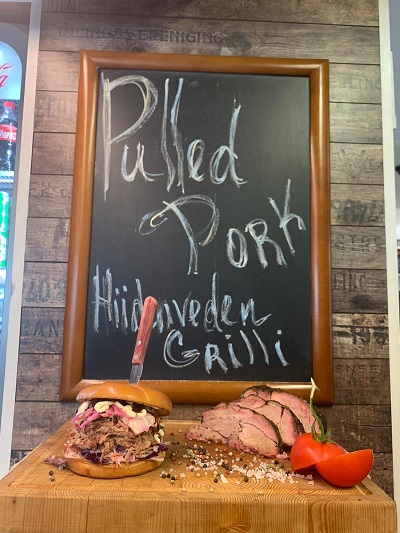 Pulled
Pork
Hiidenveden
Grilli